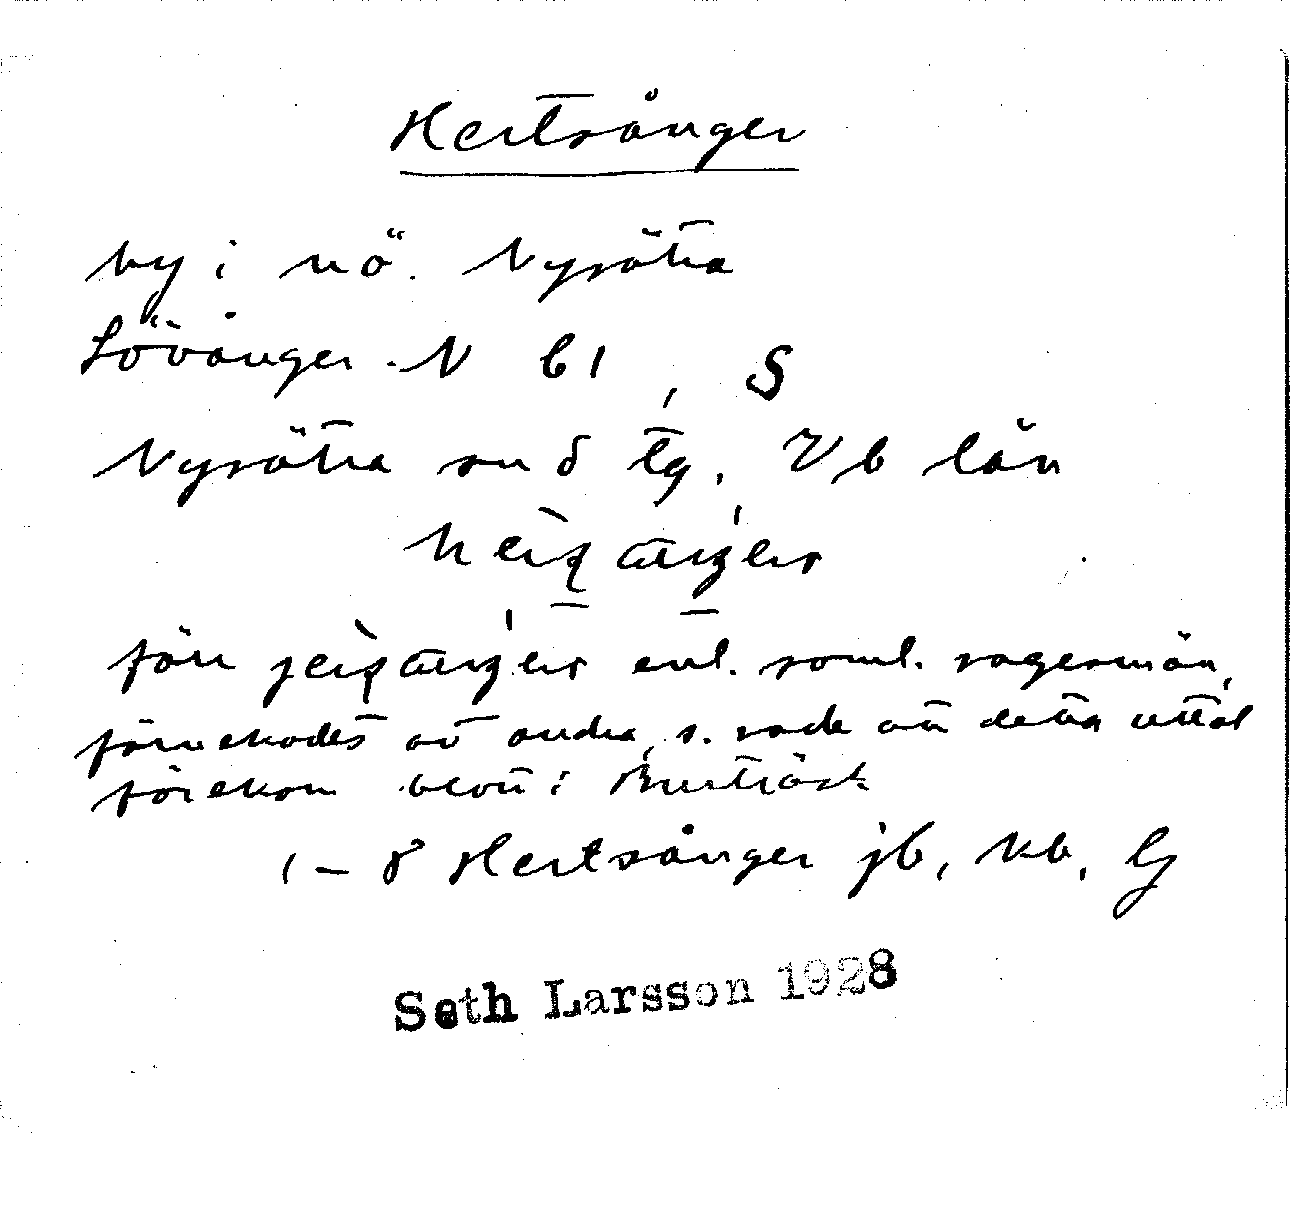 Hertsånger
by i nö. Nysätra
Lövånger - N b1, S
Nysätra sn d tg. Vb län
förr enl. soml. sagesmän,
förnekades av andra, s. sade att detta uttal
förekom blott i Burträsk
1 - 8 Hertsånger jb, kb, Gj
Seth Larsson 1928